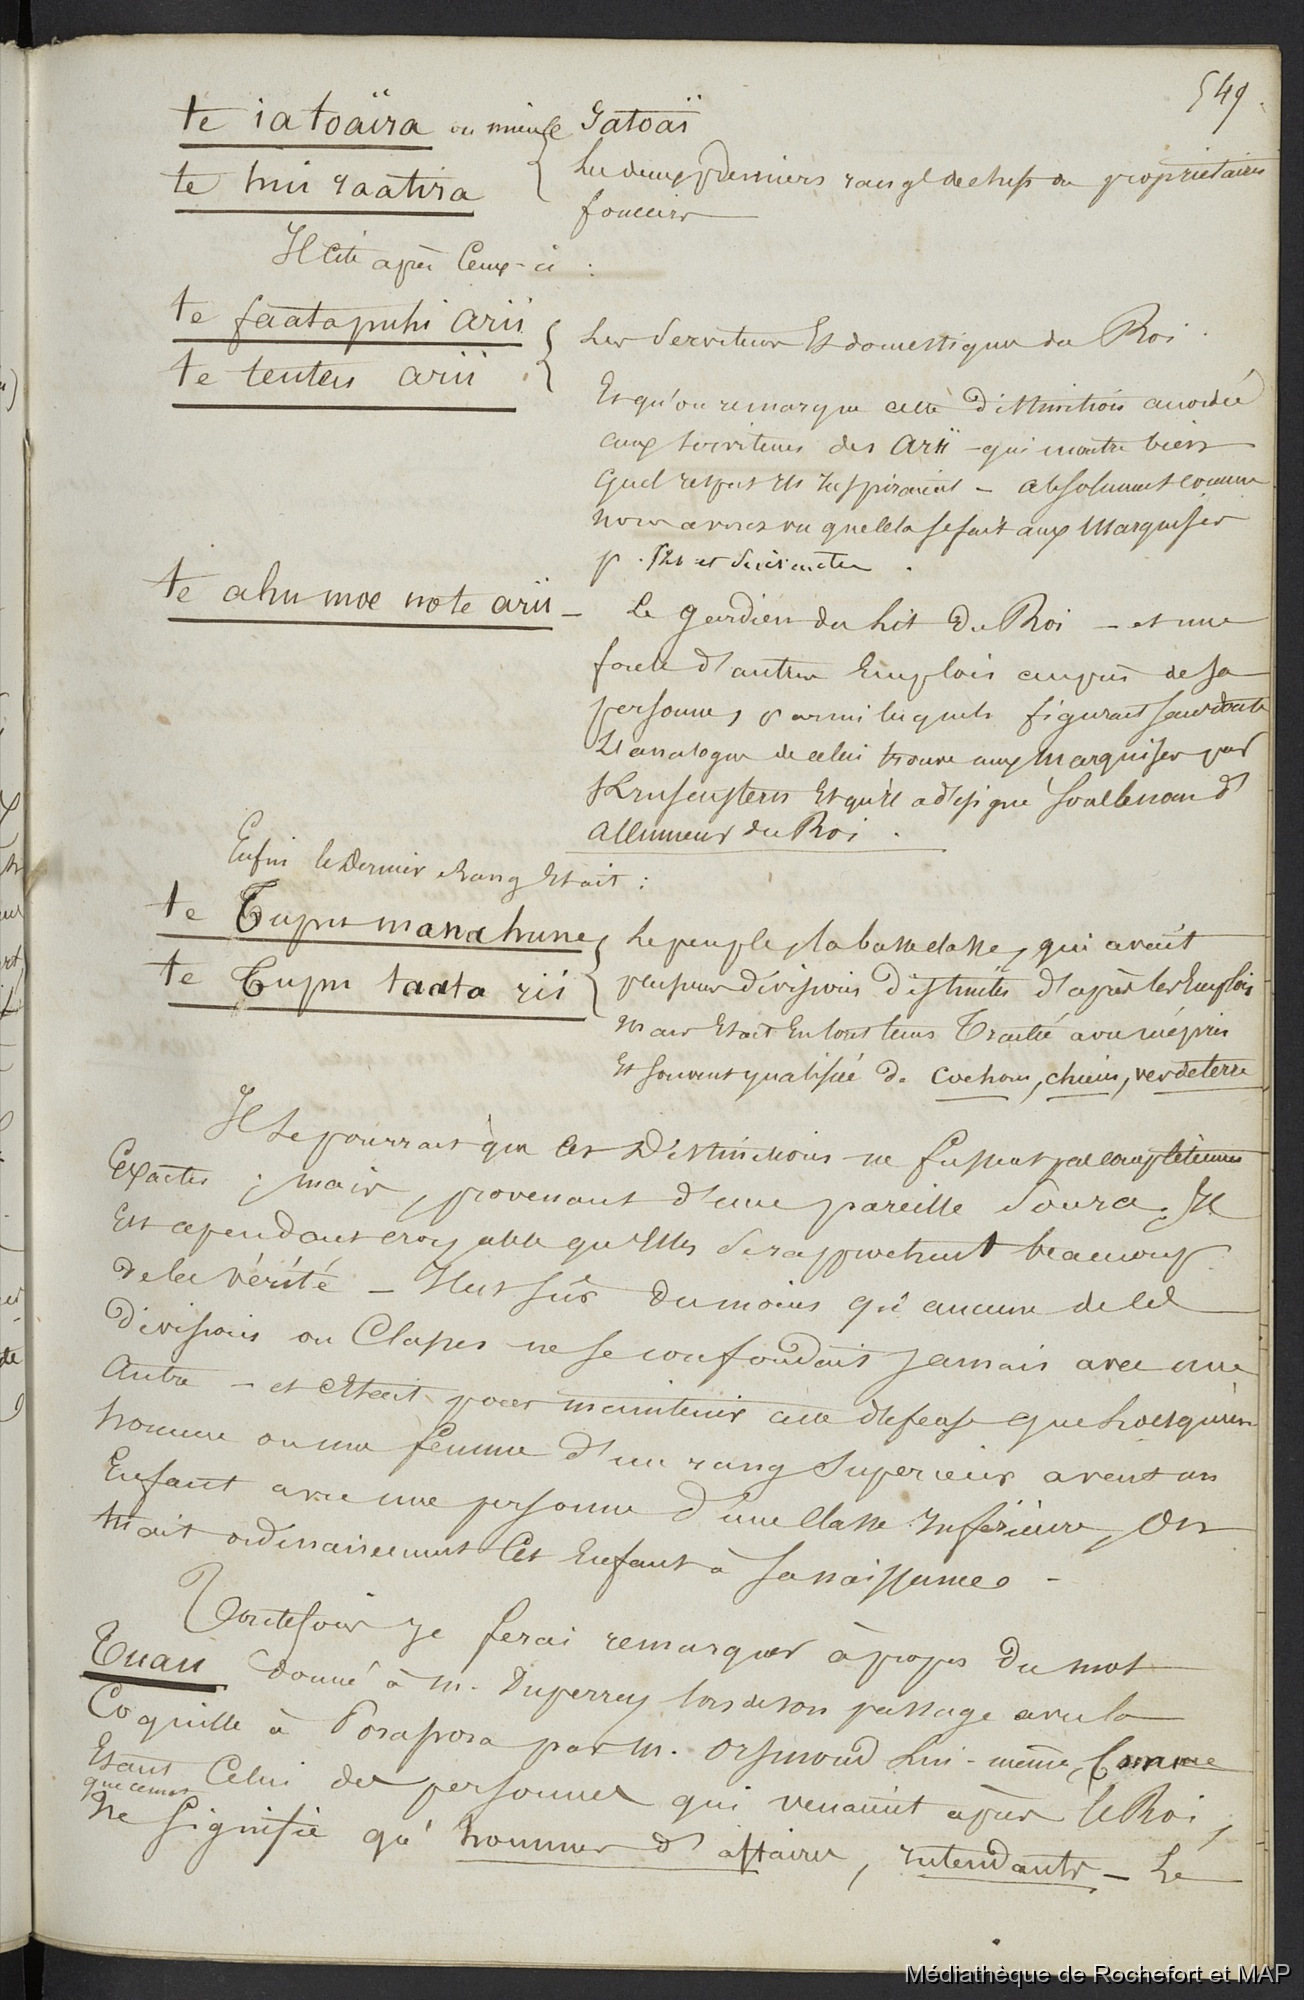 549.
te iatoaïra ou mieux Iatoaï
te hui raatira { les deux premiers rangs de chefs ou propriétaires
fonciers
Il cite après Ceux-ci :
te faatapuhi arii { les serviteurs Et domestiques du Roi.
te teuteu arii
Et qu'on remarque cette distinction accordée
aux serviteurs des Arii - qui montre bien
quel respect ils inspiraient - absolument comme
nous avons vu que cela se fait aux Marquises
p. et suivantes.
te ahu moe no te arii - Le gardien du lit Du Roi - et une
foule d'autres Emplois auprès de sa
personne, parmi lesquels figurait sans doute
l'analogue de celui trouvé aux Marquises par
Krusenstern Et qu'il a désigné sous le nom d'
Allumeur du Roi.
Enfin le Dernier Rang Etait :
te Tupu manahune, { le peuple, la basse classe, qui avait
te Tupu taata rii plusieurs divisions distinctes d'après les Emplois
mais Etait En tout tems Traité avec mépris
Et souvent qualifié de cochons, chiens, ver de terre
Il se pourrait que ces Distinctions ne fussent pas complètement
Exactes ; mais, provenant d'une pareille source, Il
Est cependant croyable qu'Elles se rapprochent beaucoup
de la vérité - Il est sûr du moins qu'aucune de ces
Divisions ou Classes ne se confondait jamais avec une
Autre - et c'Etait pour maintenir cette défense que lorsqu'un
homme ou une femme d'un rang Supérieur avait un
Enfant avec une personne d'une classe Inférieure, On
tuait ordinairement Cet Enfant à sa naissance -
Toutefois je ferai remarquer à propos Du mot
Tuau donné à M. Duperrey lors de son passage avec la
Coquille à Borabora par M. Orsmond lui-même, Comme
Etant Celui des personnes qui venaient après le Roi,
que ce mot
ne signifie qu'hommes d'affaires, intendants - Le
Médiathèque de Rochefort et MAP